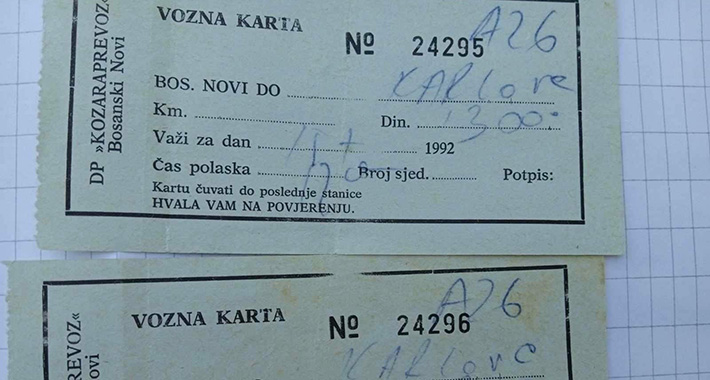 DP »KOZARAPREVOZ«
Bosanski Novi
VOZNA KARTA
№ 24295 A26
BOS. NOVI DO KARlovac
Km. Din. 1300
Važi za dan 1992
Čas polaska Broj sjed. Potpis:
Kartu čuvati do poslednje stanice
HVALA VAM NA POVJERENJU.
PREVOZ«
ovi
VOZNA KARTA
№ 24296 A26